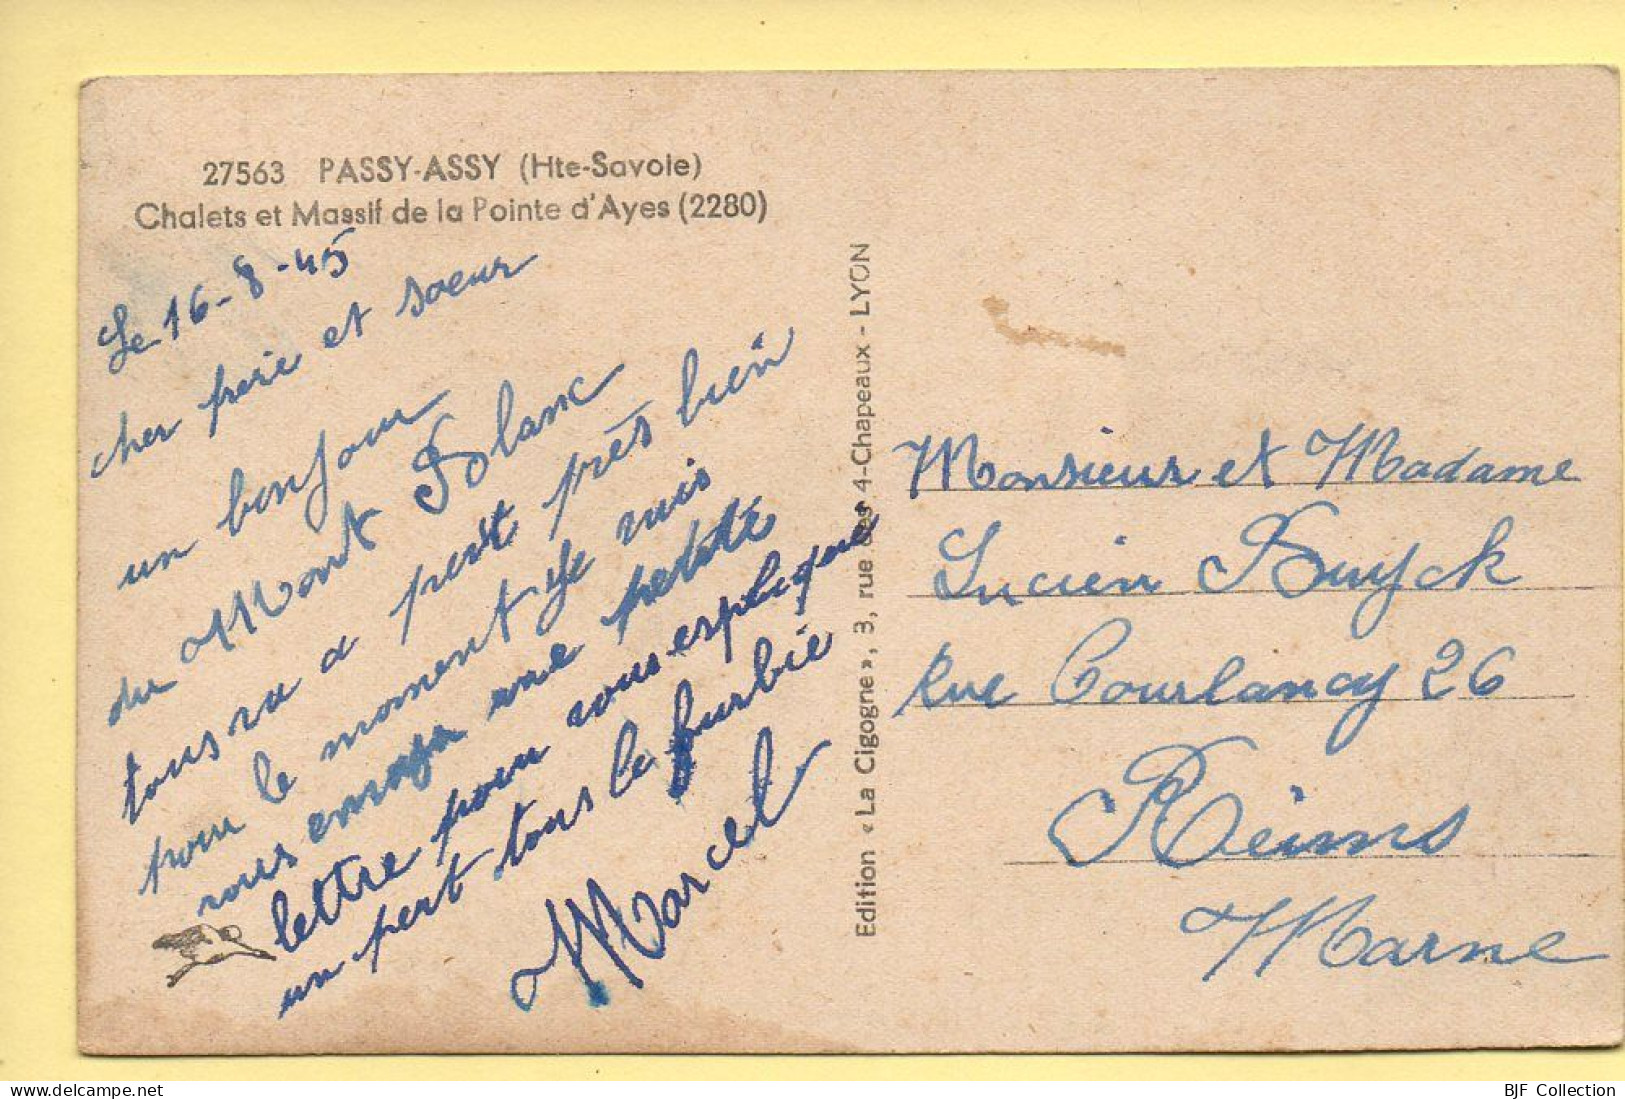 27563 PASSY-ASSY (Hte-Savoie)
Chalets et Massif de la Pointe d'Ayes (2280)
Le 16-8-45
cher frere et soeur
un bonjour
du Mont Blanc
tous va a peut près bien
pour le moment je vais
vous envoyer une petite
lettre pour vous esplique
un pert tous le furbie
Marcel
Edition « La Cigogne », 3, rue des 4-Chapeaux - LYON
Monsieur et Madame
Lucien Buyck
Rue Courlancy 26
Reims
Marne
delcampe.net
BJF Collection